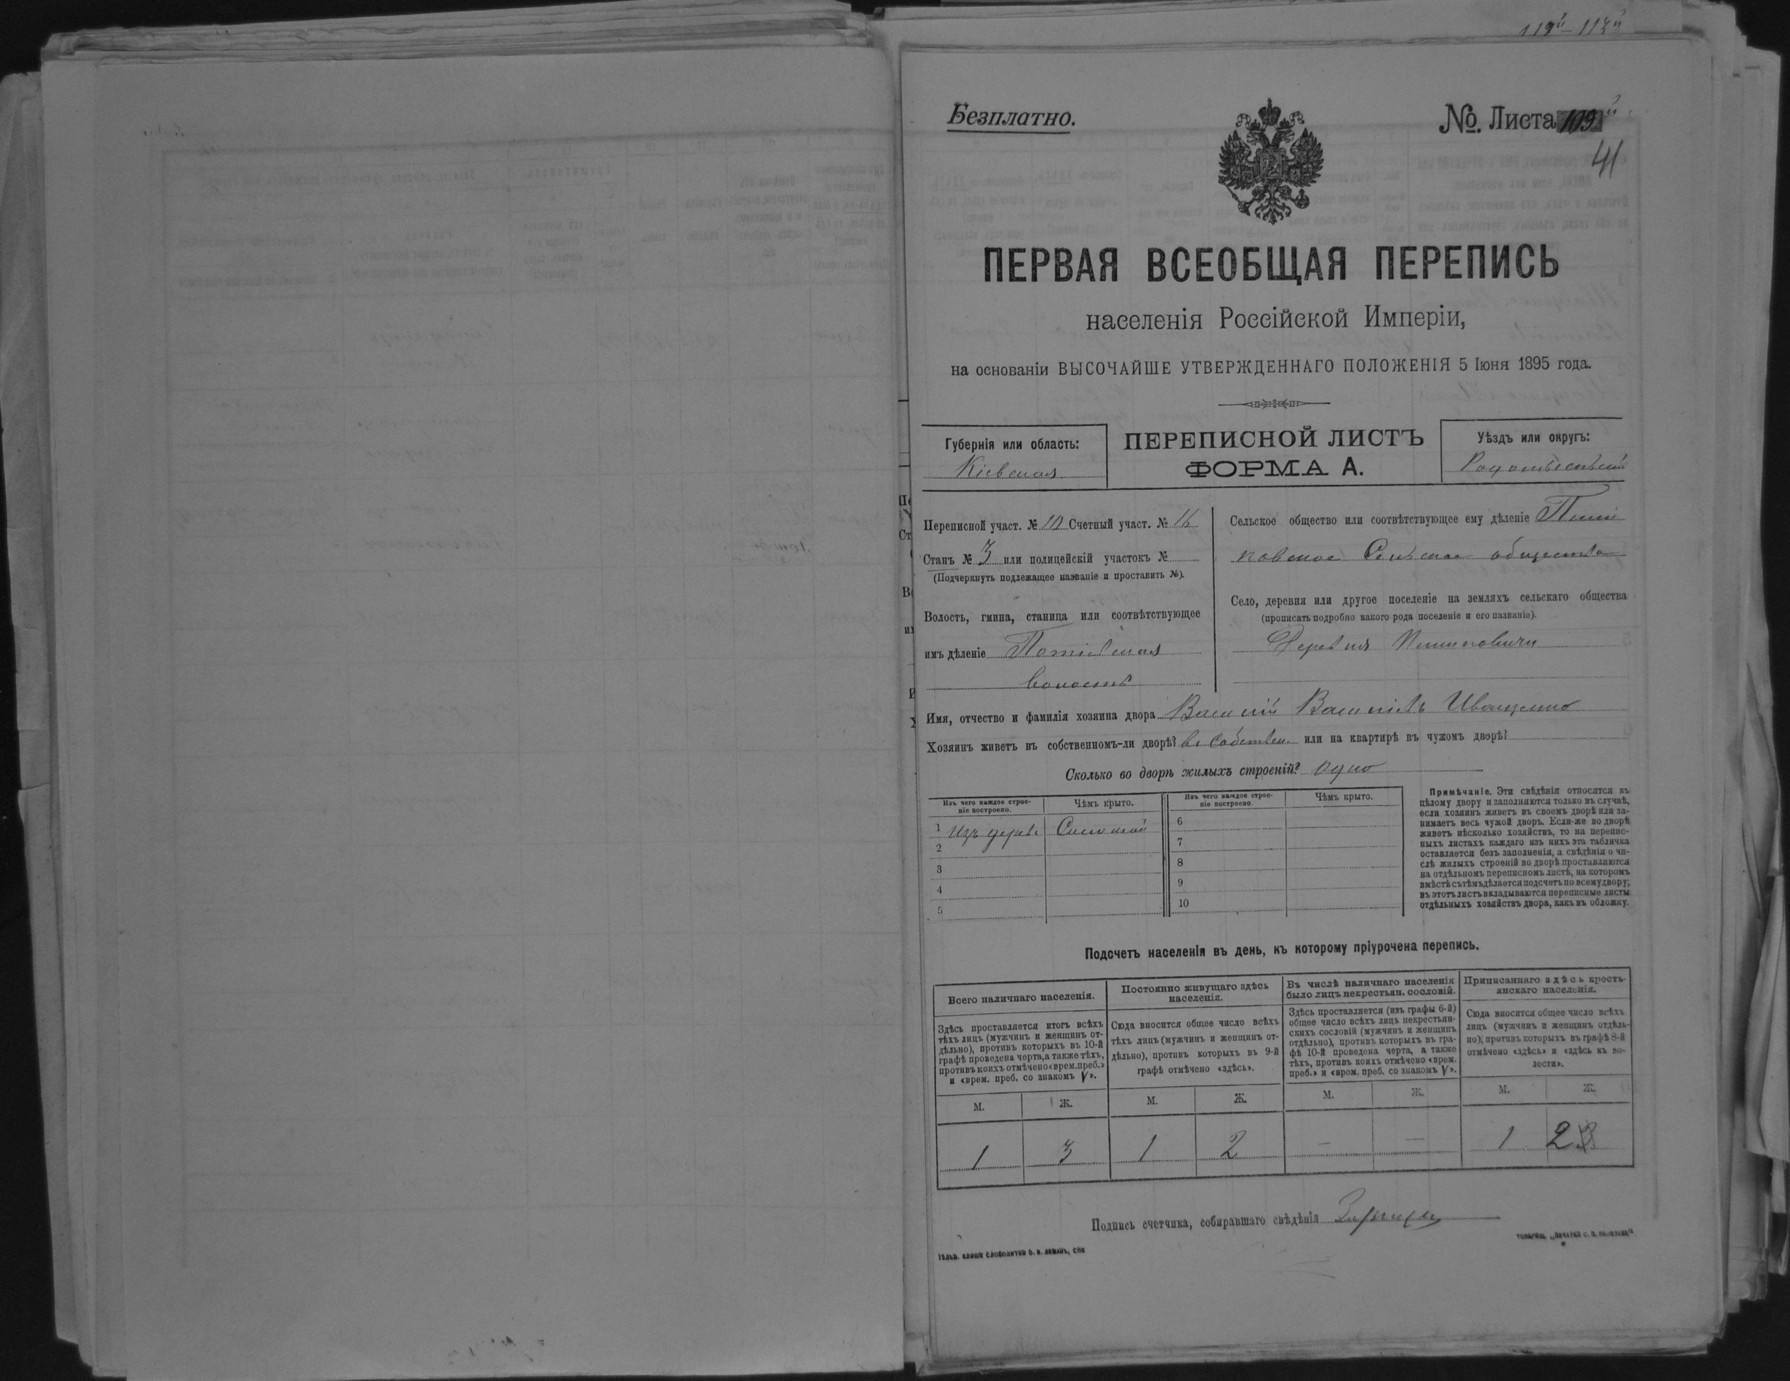 Безплатно.
№. Листа 109й
41
ПЕРВАЯ ВСЕОБЩАЯ ПЕРЕПИСЬ
населенія Россійской Имперіи,
на основаніи ВЫСОЧАЙШЕ УТВЕРЖДЕННАГО ПОЛОЖЕНІЯ 5 Іюня 1895 года.
Губернія или область:
Кіевская
ПЕРЕПИСНОЙ ЛИСТЪ
ФОРМА А.
Уѣздъ или округъ:
Радомысльскій
Переписной участ. № 12 Счетный участ. № 16
Станъ № 3 или полицейскій участокъ №
(Подчеркнуть подлежащее названіе и проставить №).
Волость, гмина, станица или соотвѣтствующее
имъ дѣленіе Потіевская
волость
Сельское общество или соотвѣтствующее ему дѣленіе Пили
повское Сельское общество
Село, деревня или другое поселеніе на земляхъ сельскаго общества
(прописать подробно какого рода поселеніе и его названіе).
Деревня Пилиповичи
Имя, отчество и фамилія хозяина двора Василій Васильевъ Иващенко
Хозяинъ живетъ въ собственномъ-ли дворѣ? въ собствен. или на квартирѣ въ чужомъ дворѣ?
Сколько во дворѣ жилыхъ строеній? одно
Изъ чего каждое строе-
ніе построено.
Чѣмъ крыто.
Изъ чего каждое строе-
ніе построено.
Чѣмъ крыто.
1 Изъ дерева Соломой
2
3
4
5
6
7
8
9
10
Примѣчаніе. Эти свѣдѣнія относятся къ
цѣлому двору и заполняются только въ случаѣ,
если хозяинъ живетъ въ своемъ дворѣ или за-
нимаетъ весь чужой дворъ. Если-же во дворѣ
живетъ нѣсколько хозяйствъ, то на перепис-
ныхъ листахъ каждаго изъ нихъ эта табличка
оставляется безъ заполненія, а свѣдѣнія о чи-
слѣ жилыхъ строеній во дворѣ проставляются
на отдѣльномъ переписномъ листѣ, на которомъ
вмѣстѣ съ тѣмъ дѣлается подсчетъ по всему двору;
въ этотъ листъ вкладываются переписные листы
отдѣльныхъ хозяйствъ двора, какъ въ обложку.
Подсчетъ населенія въ день, къ которому пріурочена перепись.
Всего наличнаго населенія.
Здѣсь проставляется итогъ всѣхъ
тѣхъ лицъ (мужчинъ и женщинъ от-
дѣльно), противъ которыхъ въ 10-й
графѣ проведена черта, а также тѣхъ,
противъ коихъ отмѣчено «врем. преб.»
и «врем. преб. со знакомъ V».
Постоянно живущаго здѣсь
населенія.
Сюда вносится общее число всѣхъ
тѣхъ лицъ (мужчинъ и женщинъ от-
дѣльно), противъ которыхъ въ 9-й
графѣ отмѣчено «здѣсь».
Въ числѣ наличнаго населенія
было лицъ некрестьян. сословій.
Здѣсь проставляется (изъ графы 6-й)
общее число всѣхъ лицъ некрестьян-
скихъ сословій (мужчинъ и женщинъ
отдѣльно), противъ которыхъ въ гра-
фѣ 10-й проведена черта, а также
тѣхъ, противъ коихъ отмѣчено «врем.
преб.» и «врем. преб. со знакомъ V».
Приписаннаго здѣсь кресть-
янскаго населенія.
Сюда вносится общее число всѣхъ
лицъ (мужчинъ и женщинъ отдѣль-
но), противъ которыхъ въ графѣ 8-й
отмѣчено «здѣсь» и «здѣсь къ во-
лости».
М. Ж. М. Ж. М. Ж. М. Ж.
1 3 1 2 — — 1 2
Подпись счетчика, собиравшаго свѣдѣнія